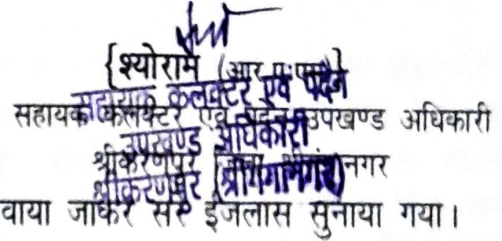 {श्योराम (आर.ए.एस)}
सहायक कलक्टर एवं पदेन उपखण्ड अधिकारी
श्रीकरणपुर जिला श्रीगंगानगर
सहायक कलक्टर एवं पदेन
उपखण्ड अधिकारी
श्रीकरणपुर (श्रीगंगानगर)
वाया जाकर सरे इजलास सुनाया गया।